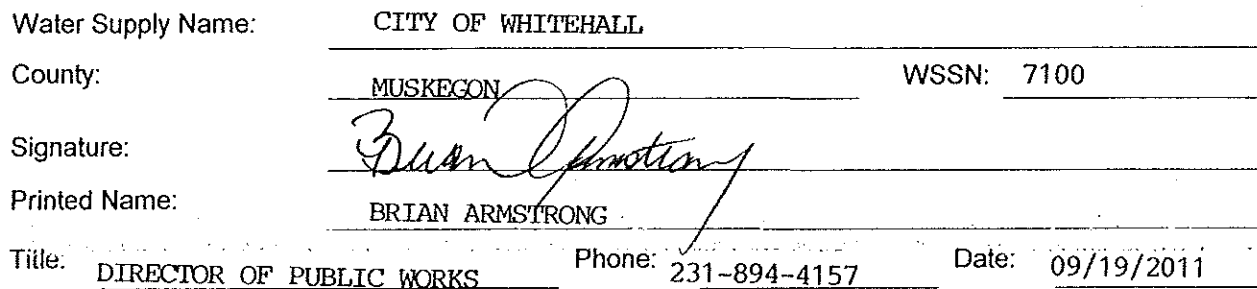 Water Supply Name: CITY OF WHITEHALL
County: MUSKEGON WSSN: 7100
Signature: Brian Armstrong
Printed Name: BRIAN ARMSTRONG
Title: DIRECTOR OF PUBLIC WORKS Phone: 231-894-4157 Date: 09/19/2011